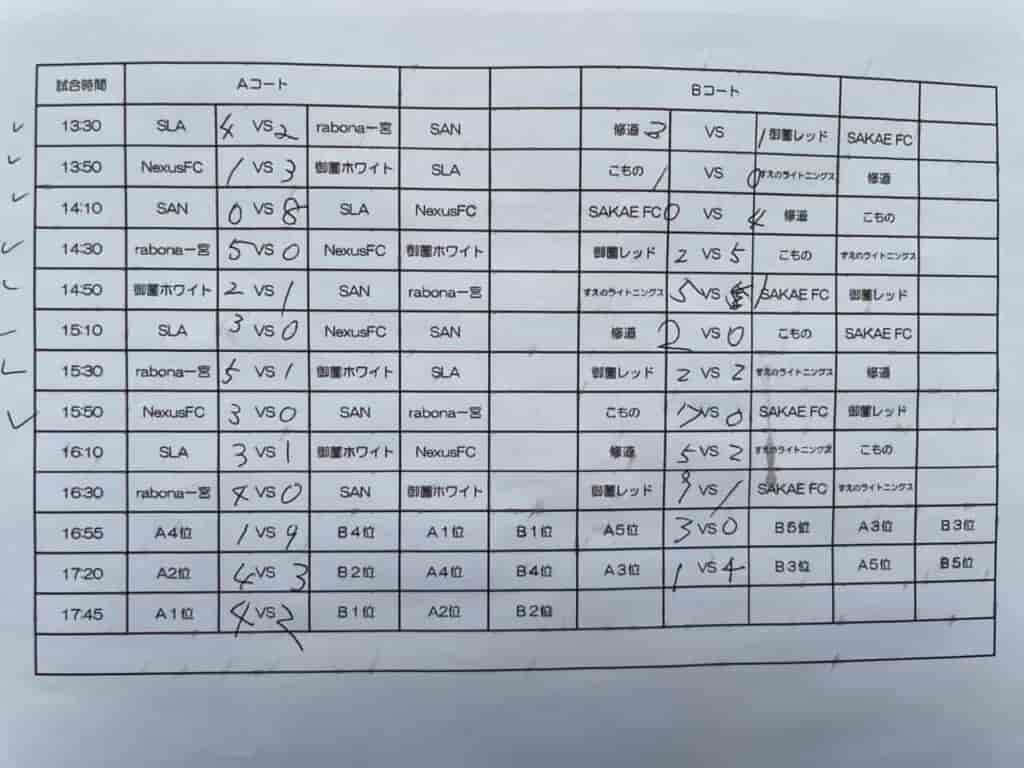 試合時間 Aコート Bコート
13:30 SLA 4 VS 2 rabona一宮 SAN 修道 3 VS 1 御薗レッド SAKAE FC
13:50 NexusFC 1 VS 3 御薗ホワイト SLA こもの 1 VS 0 すえのライトニングス 修道
14:10 SAN 0 VS 8 SLA NexusFC SAKAE FC 0 VS 4 修道 こもの
14:30 rabona一宮 5 VS 0 NexusFC 御薗ホワイト 御薗レッド 2 VS 5 こもの すえのライトニングス
14:50 御薗ホワイト 2 VS 1 SAN rabona一宮 すえのライトニングス 5 VS 1 SAKAE FC 御薗レッド
15:10 SLA 3 VS 0 NexusFC SAN 修道 2 VS 0 こもの SAKAE FC
15:30 rabona一宮 5 VS 1 御薗ホワイト SLA 御薗レッド 2 VS 2 すえのライトニングス 修道
15:50 NexusFC 3 VS 0 SAN rabona一宮 こもの VS 0 SAKAE FC 御薗レッド
16:10 SLA 3 VS 1 御薗ホワイト NexusFC 修道 5 VS 2 すえのライトニングス こもの
16:30 rabona一宮 4 VS 0 SAN 御薗ホワイト 御薗レッド 9 VS 1 SAKAE FC すえのライトニングス
16:55 A4位 1 VS 9 B4位 A1位 B1位 A5位 3 VS 0 B5位 A3位 B3位
17:20 A2位 4 VS 3 B2位 A4位 B4位 A3位 1 VS 4 B3位 A5位 B5位
17:45 A1位 4 VS 2 B1位 A2位 B2位